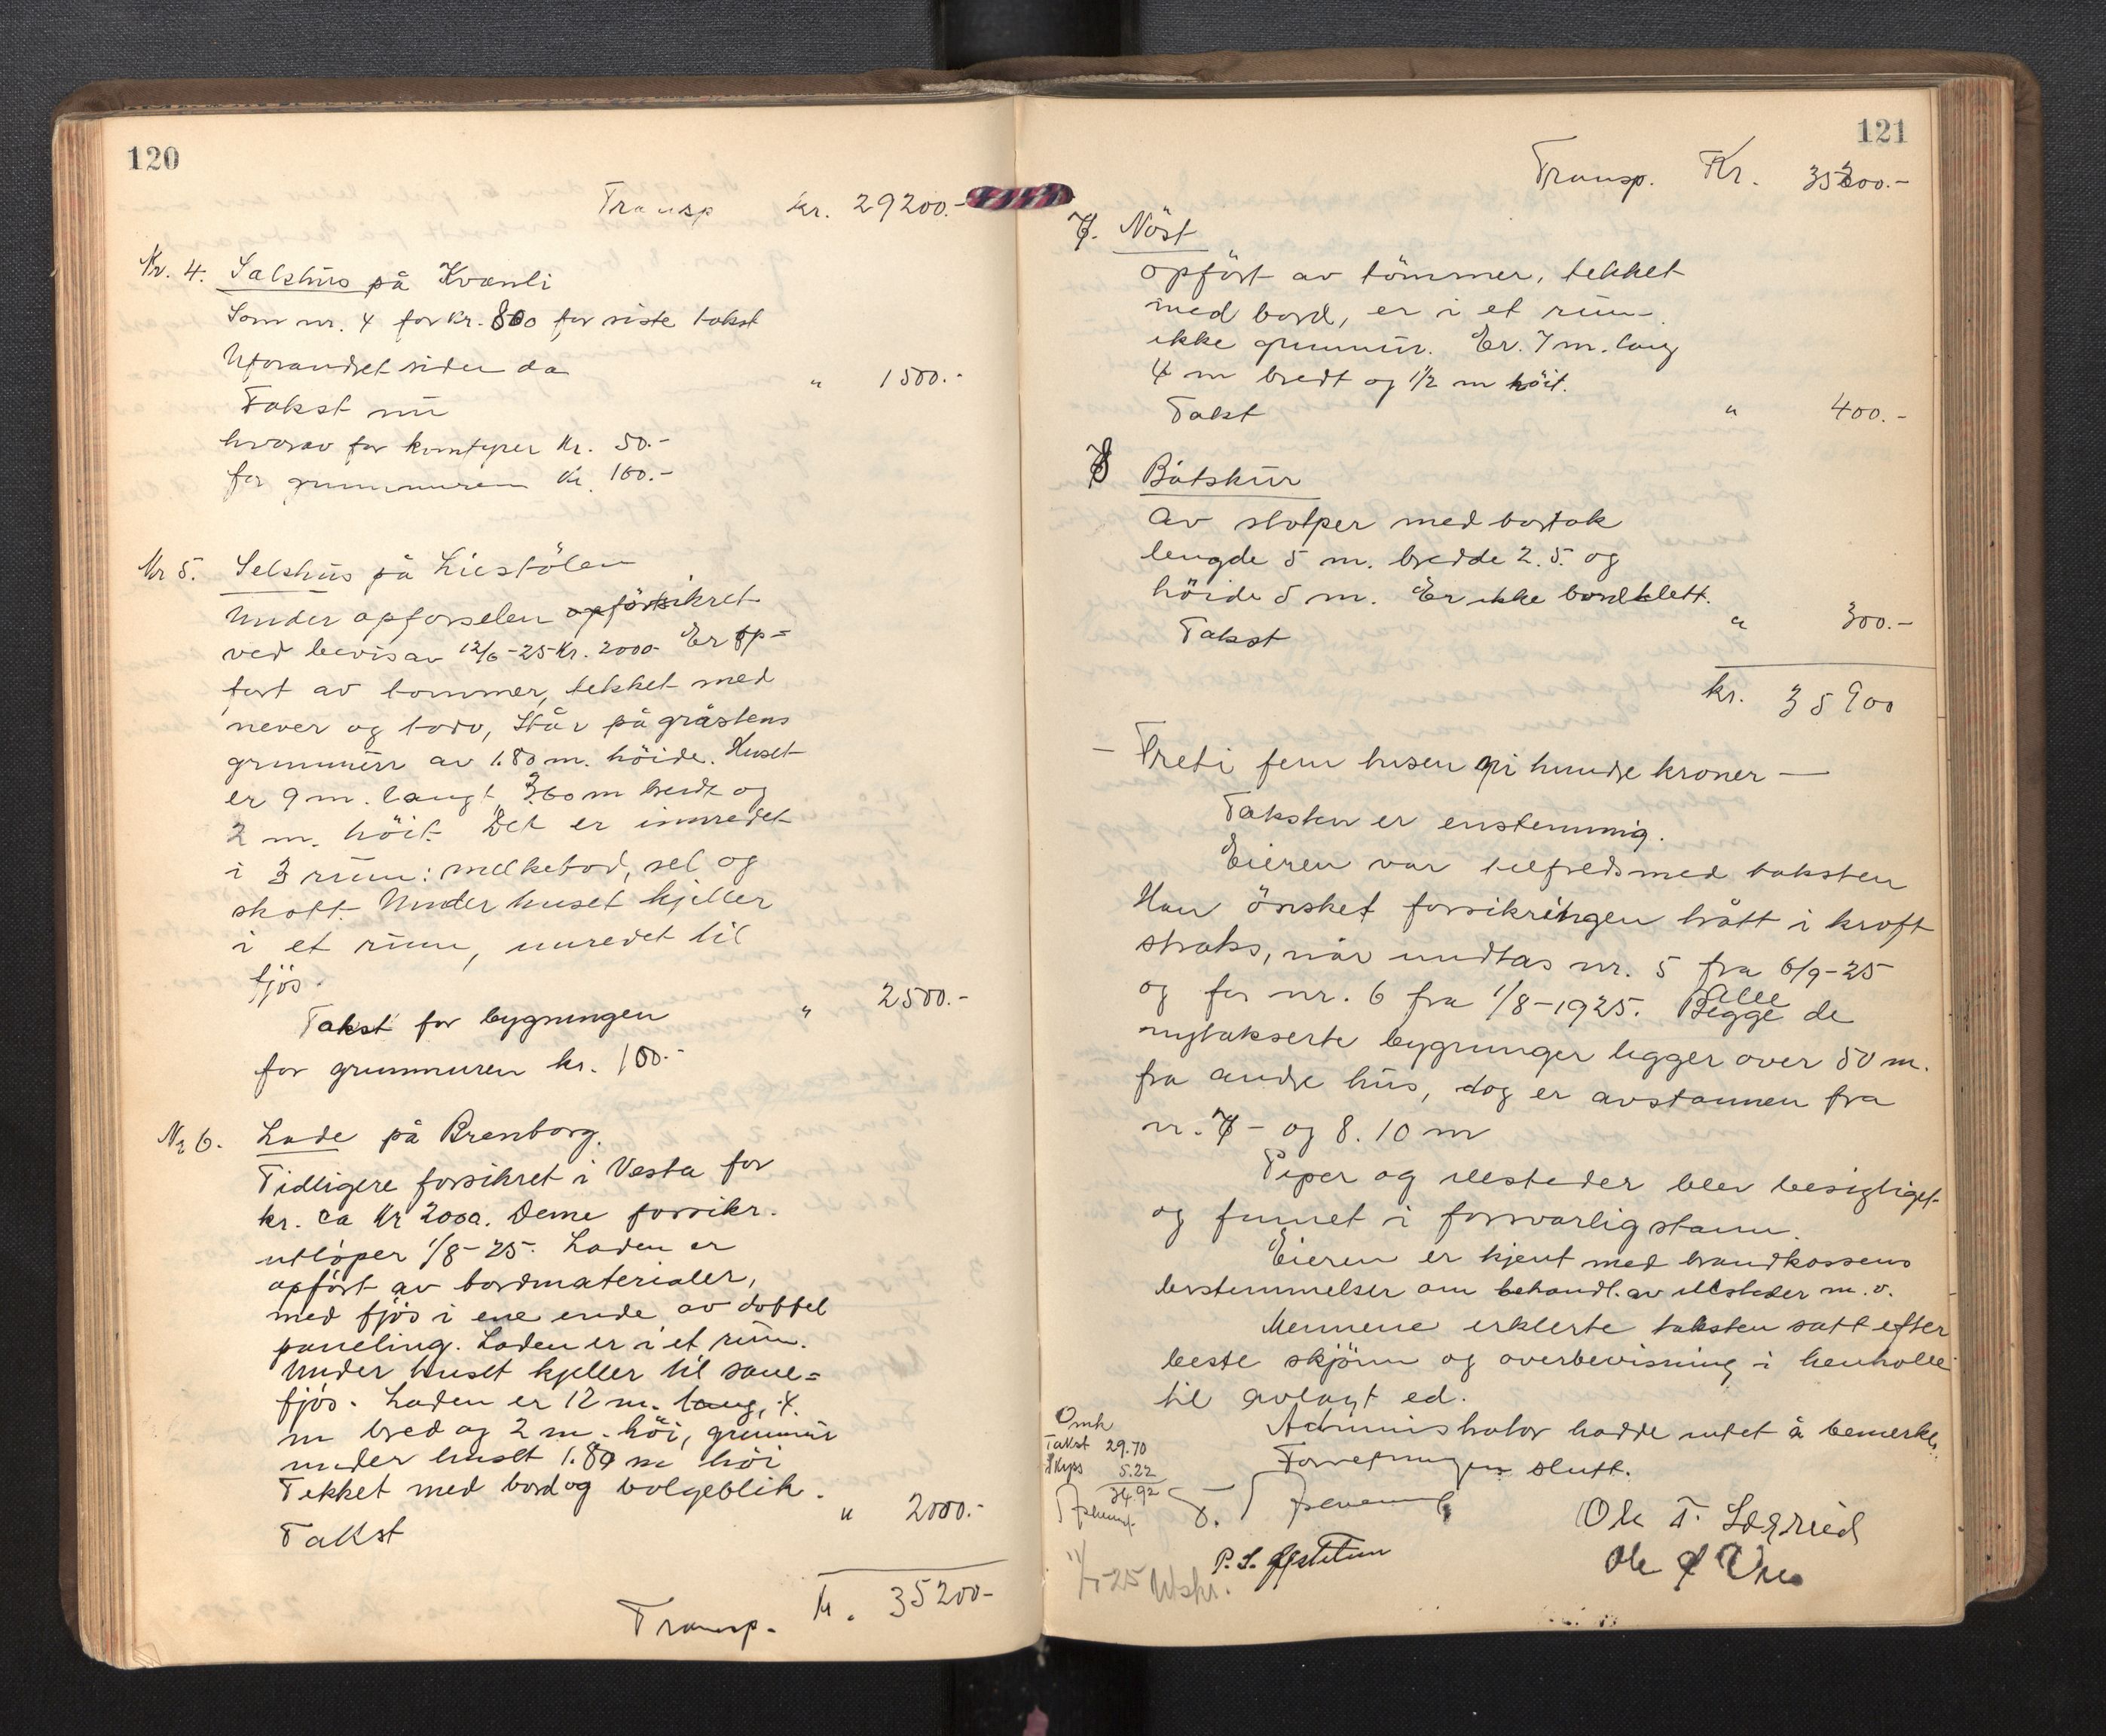 120
Transp kr. 29200.-
Nr. 4. Salshus på Kvanli
Som nr. 4 for kr. 800 for siste takst
Uforandret siden da
" 1500.-
Takst nu
hvorav for Kr. 50.-
for grunnmuren kr. 100.-
Nr 5. Selshus på Liestölen
Under opförselen opförtsikret
ved bevis av 12/6-25 Kr. 2000- Er op=
fort av tommer, tekket med
never og torv, Står på gråstens
grunnmur av 1.80 m. höide. Huset
er 9 m. langt 3.60 m bredt og
2 m. höit. Det er innredet
i 3 rum: melkebod, sel og
skott. Under huset kjeller
i et rum, innredet til
fjös.
Takst for bygningen " 2500.-
for grunnmuren kr. 100.-
Nr 6. Lade på Brenborg.
Tidligere forsikret i Vesta for
kr. ca Kr 2000. Denne forsikr.
utlöper 1/8-25. Laden er
opfört av bordmaterialer,
med fjös i ene ende av dobbel
paneling. Laden er i et rum.
Under huset kjeller til saue=
fjös. Laden er 12 m. lang, 4.
m bred og 2 m. höi, grunnmur
under huset 1.80 m höi
Tekket med bord og bolgeblik.
" 2000.-
Takst
Transp. kr. 35200-
121
Transp. Kr. 35200.-
7. Nöst
opfört av tömmer, tekket
med bord, er i et rum-
ikke grunnmur. Er 7 m. lang
4 m bredt og 1/2 m höit.
Takst " 400.-
8 Båtskur
av stolper med bortak
lengde 5 m. bredde 2.5. og
höide 5 m. Er ikke bordklett.
Takst " 300.-
kr. 35900
- Treti fem tusen ni hundre kroner -
Taksten er enstemmig.
Eieren var tilfreds med taksten
Han önsket forsikringen trått i kraft
straks, når undtas nr. 5 fra 6/9-25
og for nr. 6 fra 1/8-1925. Begge alle de
nytakserte bygninger ligger over 50 m.
fra andre hus, dog er avstannen fra
nr. 7- og 8. 10 m
Piper og ildsteder blev besigtiget
og funnet i forsvarlig stann.
Eieren er kjent med brandkassens
bestemmelser om behandl. av ildsteder m. v.
Mennene erklerte taksten satt efter
beste skjönn og overbevisning i henhold
til avlagt ed.
Administrator hadde intet å bemerke.
Forretningen slutt.
Omk
Takst 29.70
Skyss 5.22
34.92
Ole T.
Ole
P. S.